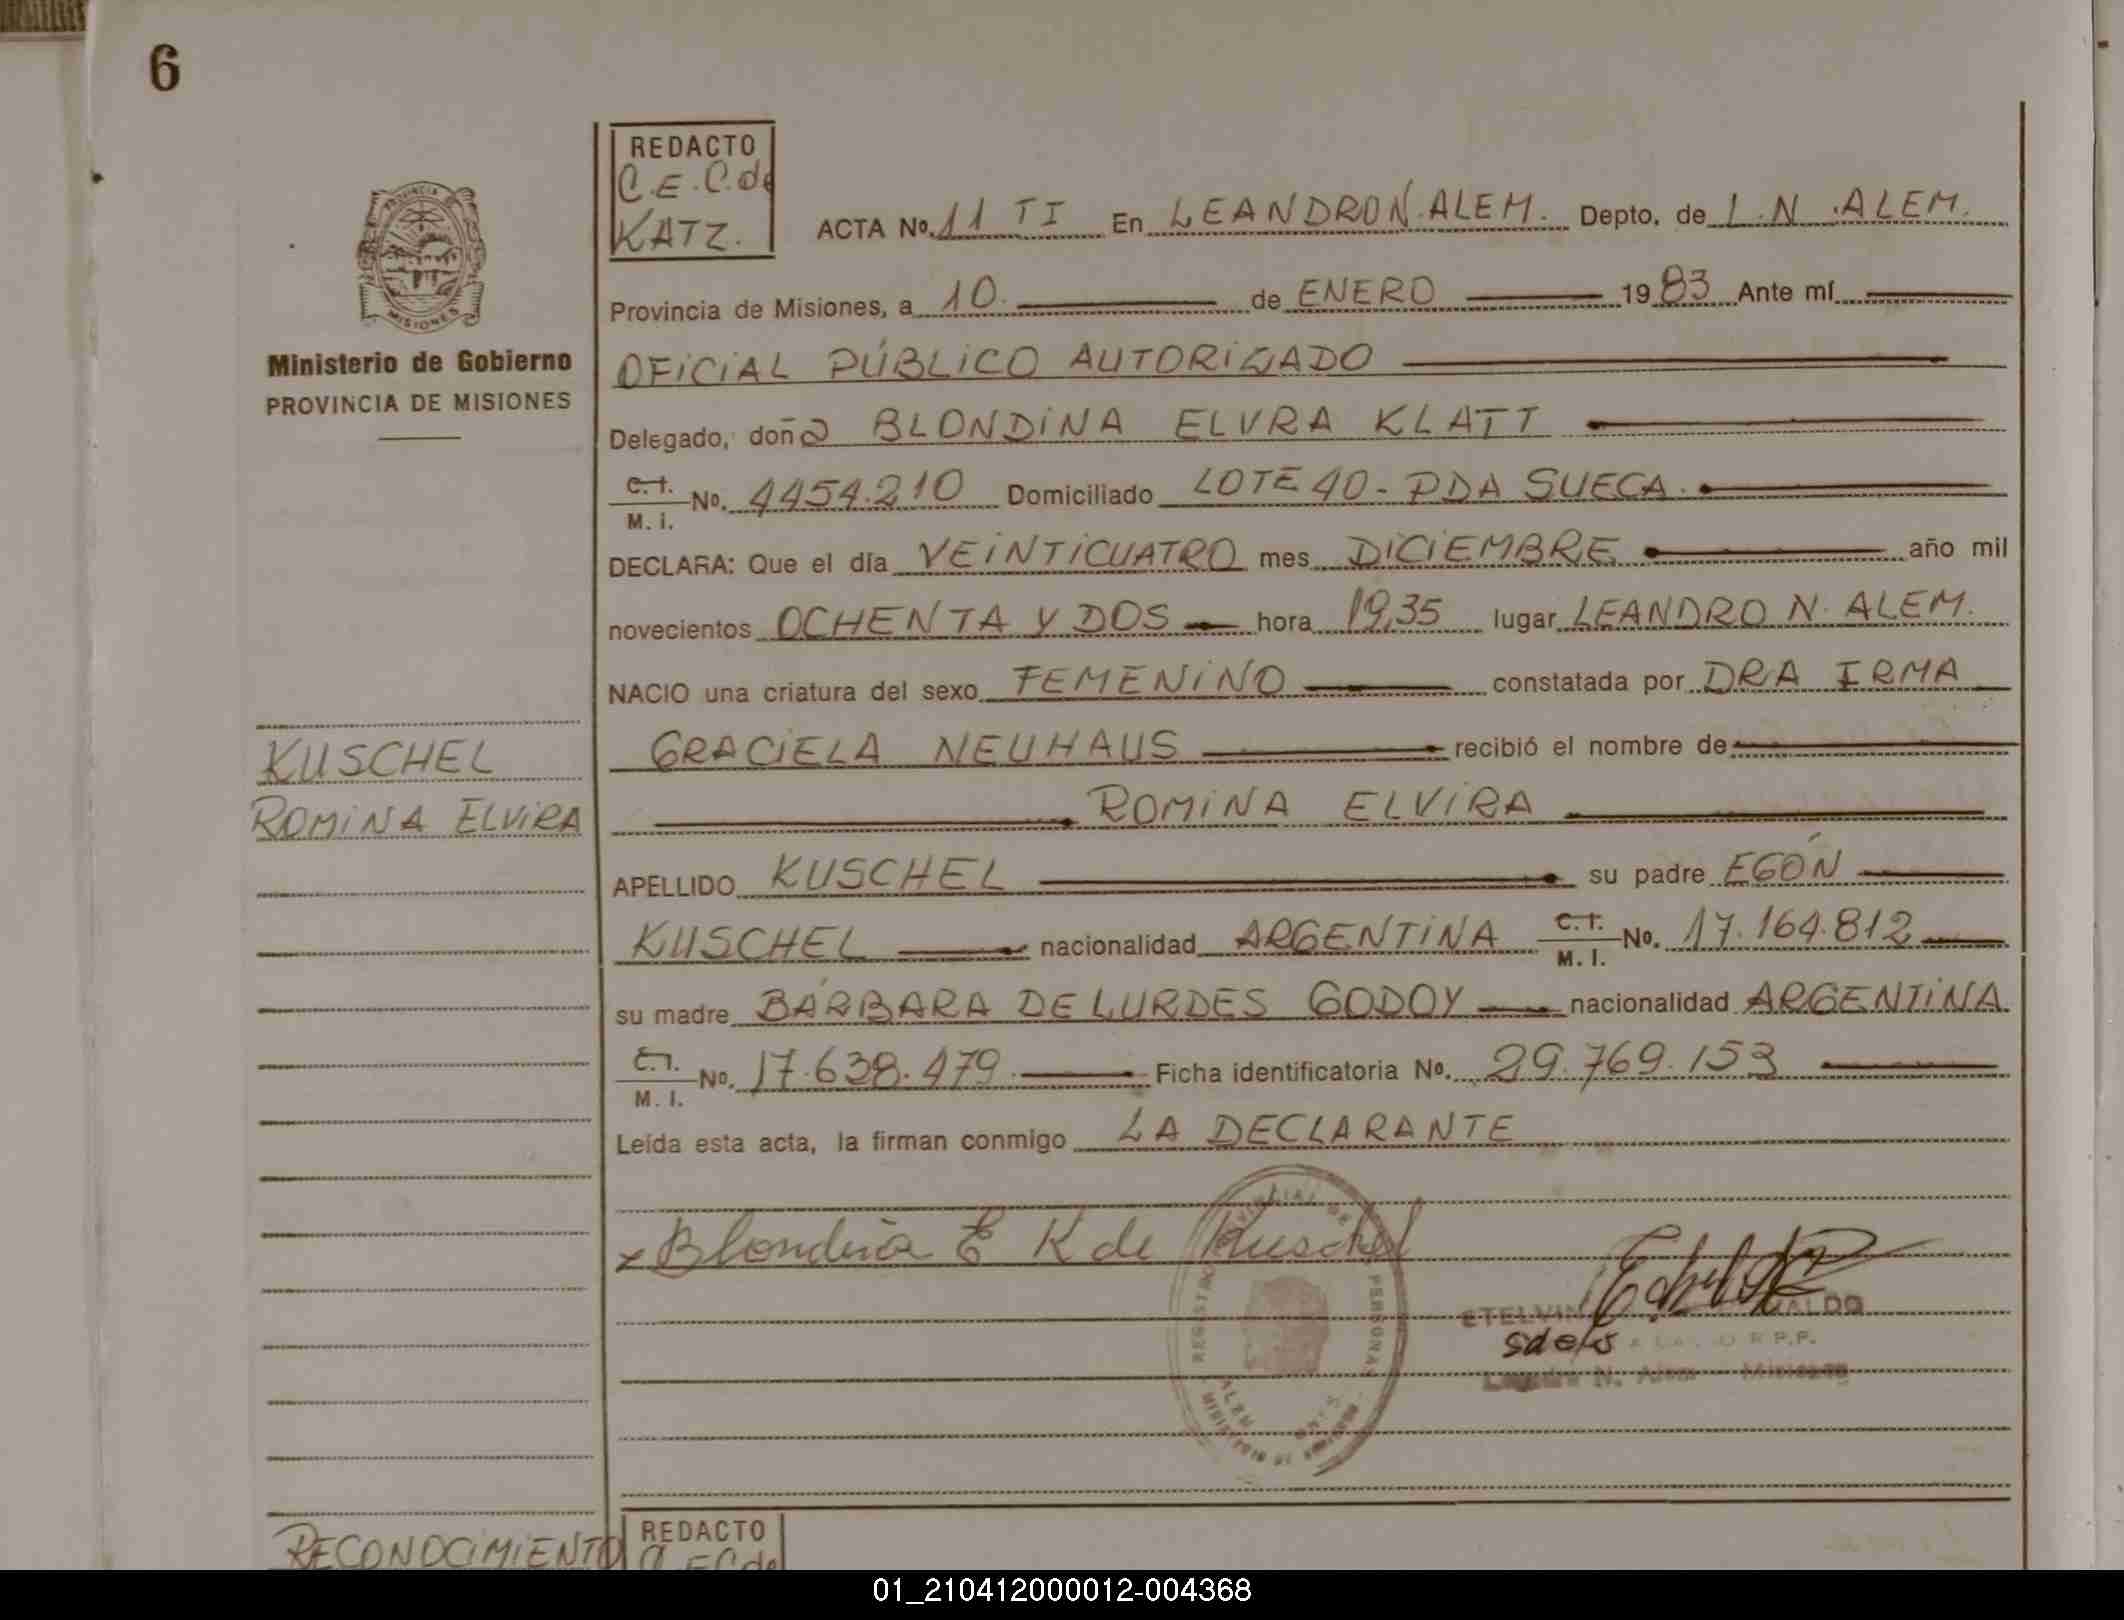 6
REDACTO
C.E.C. de
KATZ.
PROVINCIA DE
MISIONES
Ministerio de Gobierno
PROVINCIA DE MISIONES
ACTA No. 11 TI En LEANDRO N. ALEM. Depto. de L.N. ALEM.
Provincia de Misiones, a 10. de ENERO 1983 Ante mí
OFICIAL PÚBLICO AUTORIZADO
Delegado, doña BLONDINA ELVRA KLATT
C. I. M. i. No. 4454.210 Domiciliado LOTE 40 - PDA SUECA.
DECLARA: Que el día VEINTICUATRO mes DICIEMBRE año mil
novecientos OCHENTA Y DOS hora 19,35 lugar LEANDRO N. ALEM.
NACIO una criatura del sexo FEMENINO constatada por DRA IRMA
GRACIELA NEUHAUS recibió el nombre de
ROMINA ELVIRA
KUSCHEL
ROMINA ELVIRA
APELLIDO KUSCHEL su padre EGÓN
KUSCHEL nacionalidad ARGENTINA C.I. M. I. No. 17.164.812
su madre BÁRBARA DE LURDES GODOY nacionalidad ARGENTINA
C.I. M. I. No. 17.638.479 Ficha identificatoria No. 29.769.153
Leída esta acta, la firman conmigo LA DECLARANTE
x Blondina E K de Kuschel
REGISTRO PROVINCIAL DE PERSONAS
ALEM
MISIONES
Leandro N. Alem - Misiones
RECONOCIMIENTO
REDACTO
C.E.C. de
01_210412000012-004368